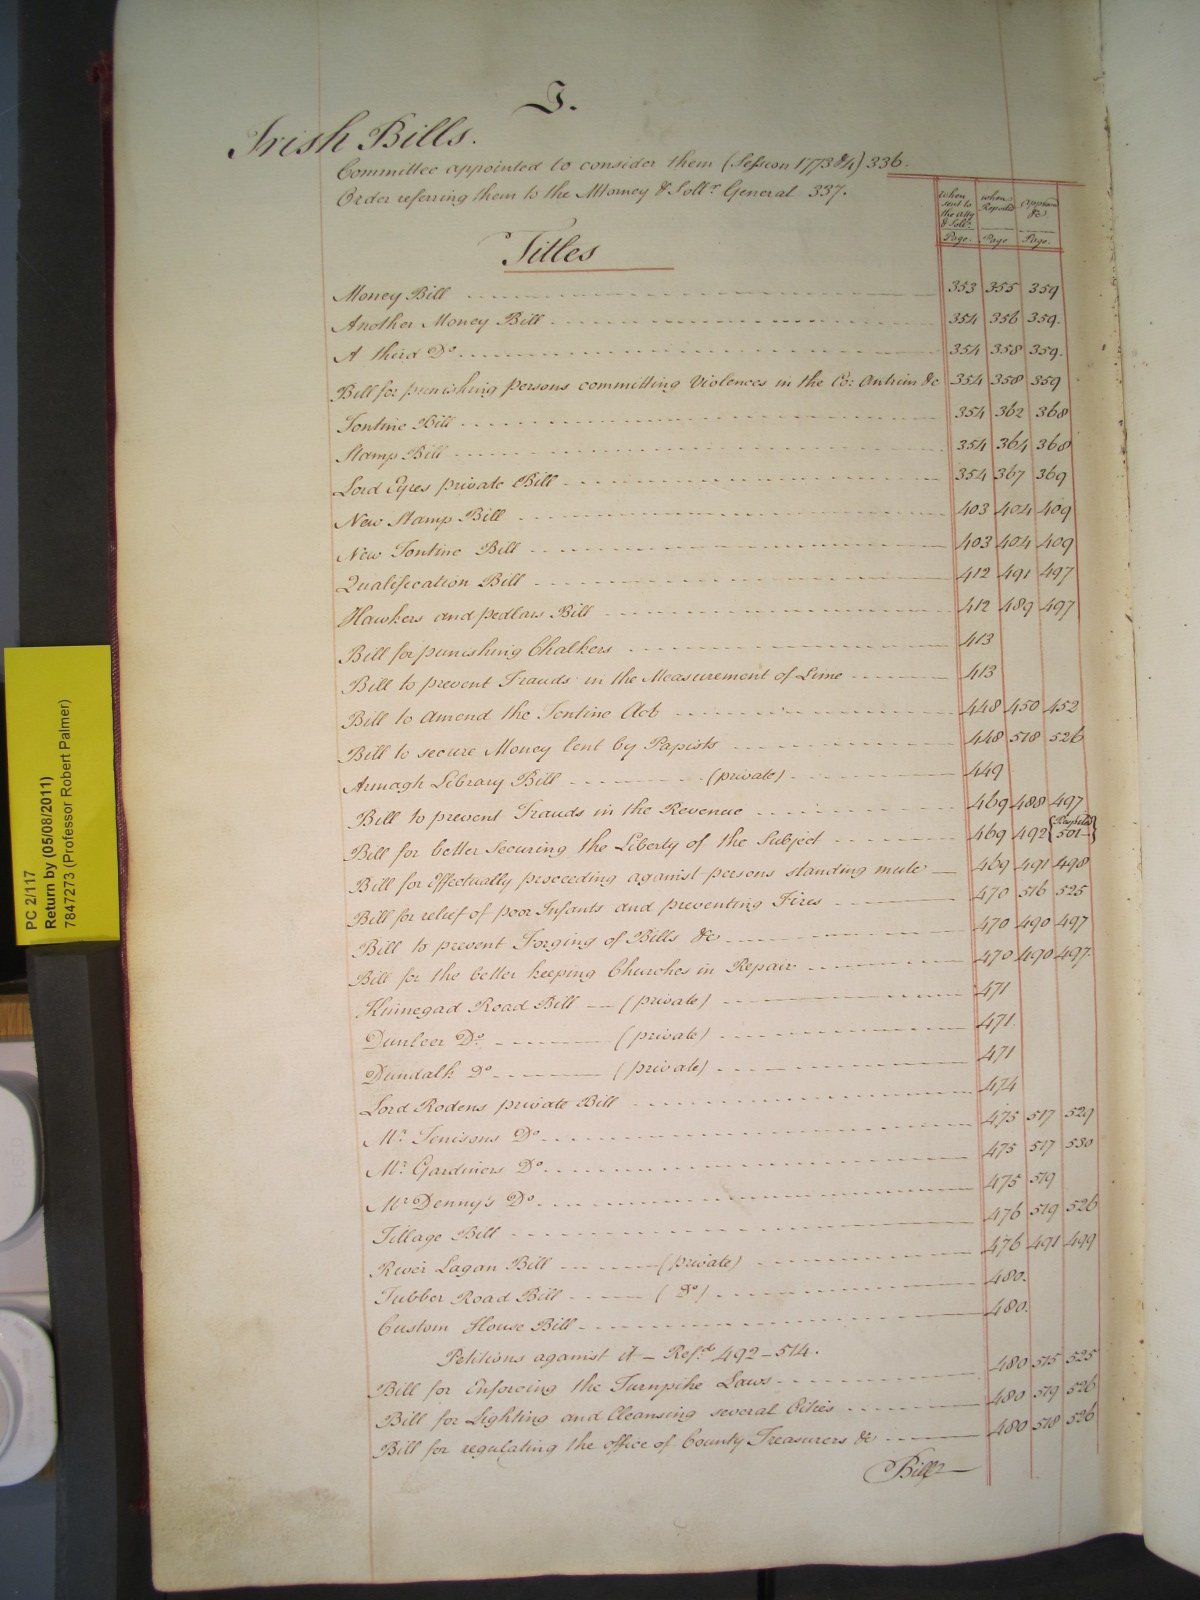 I.
Irish Bills.
Committee appointed to consider them (Session 1773 & 4) 336.
Order referring them to the Attorney & Sollr. General 337.
Titles
when sent to the Atty & Sollr. Page. | when Reported Page | approved &c Page.
Money Bill 353 355 359
Another Money Bill 354 356 359.
A third Do. 354 358 359.
Bill for punishing persons committing Violences in the Co: Antrim &c 354 358 359
Tontine Bill 354 362 368
Stamp Bill 354 364 368
Lord Eyres private Bill 354 367 369
New Stamp Bill 403 404 409
New Tontine Bill 403 404 409
Qualification Bill 412 491 497
Hawkers and pedlars Bill 412 489 497
Bill for punishing Chalkers 413
Bill to prevent Frauds in the Measurement of Lime 413
Bill to amend the Tontine Act 448 450 452
Bill to secure Money lent by Papists 448 518 526
Armagh Library Bill (private) 449
Bill to prevent Frauds in the Revenue 469 488 497
Bill for better Securing the Liberty of the Subject 469 492 {Respited 501}
Bill for Effectually proceeding against persons standing mute 469 491 498
Bill for relief of poor Infants and preventing Fires 470 516 525
Bill to prevent Forging of Bills &c 470 490 497
Bill for the better keeping Churches in Repair 470 490 497.
Kinnegad Road Bill (private) 471
Dunleer Do. (private) 471.
Dundalk Do. (private) 471
Lord Rodens private Bill 474
Mr. Tenisons Do. 475 517 529
Mr. Gardiners Do. 475 517 530
Mr Denny's Do. 475 519
Tillage Bill 476 519 526
River Lagan Bill (private) 476 491 499
Tubber Road Bill (Do) 480.
Custom House Bill 480.
Petitions against it – Refd. 492 – 514.
Bill for Enforcing the Turnpike Laws 480 515 525
Bill for Lighting and Cleansing several Cities 480 519 526
Bill for regulating the office of County Treasurers &c 480 518 526
Bill
PC 2/117
Return by (05/08/2011)
7847273 (Professor Robert Palmer)